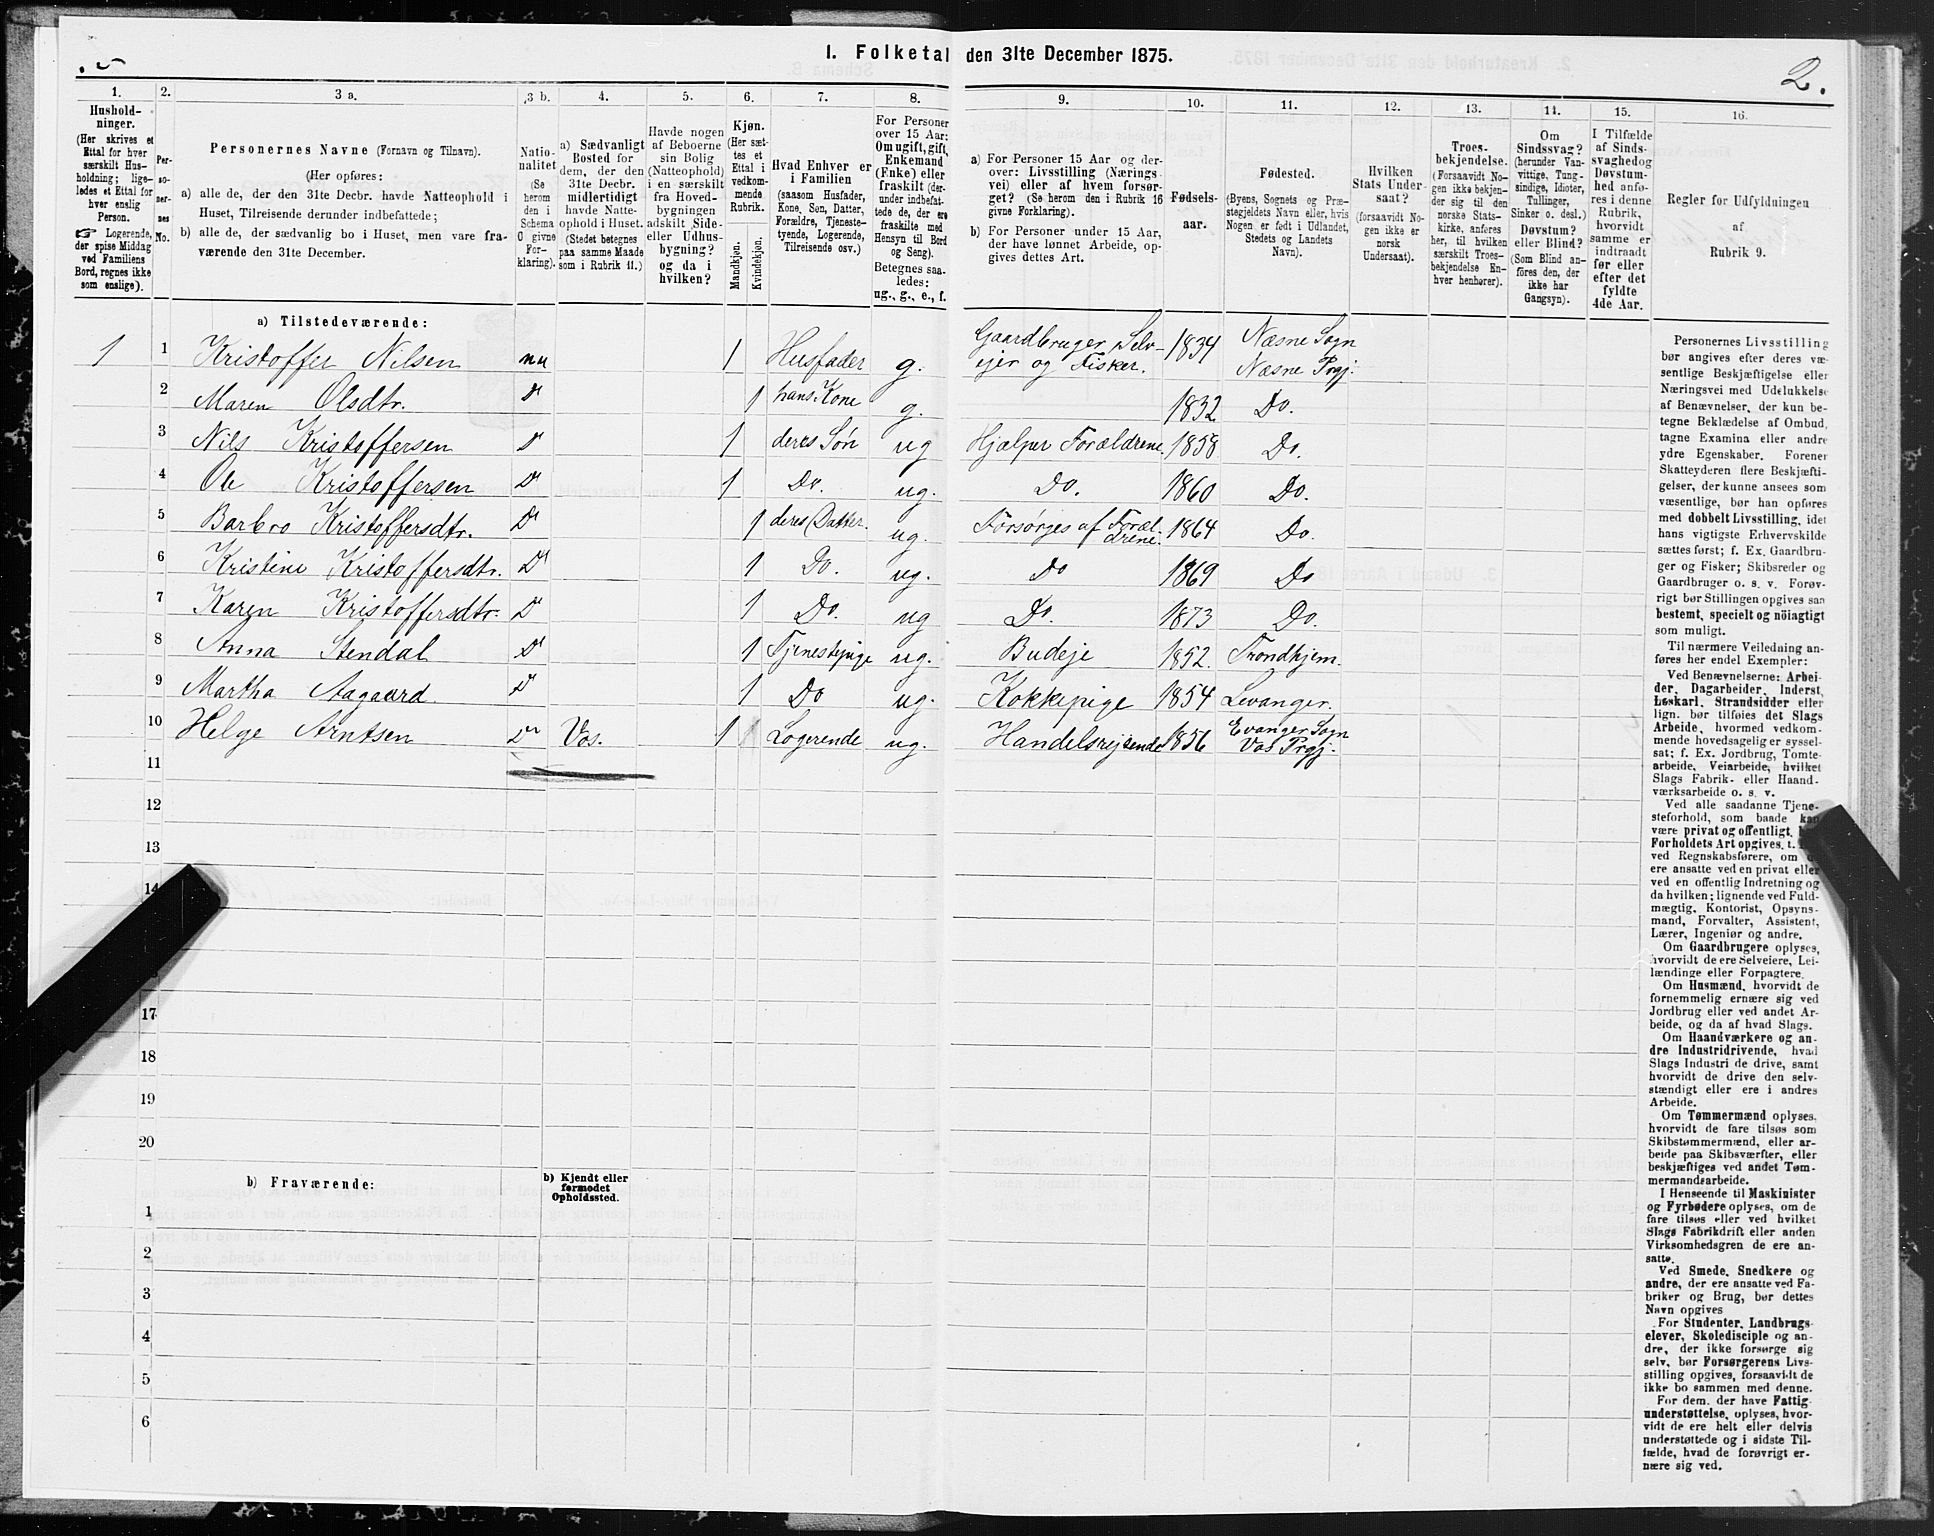 1. Folketal den 31te December 1875.
2.
1.
Hushold-
ninger.
(Her skrives et
Ettal for hver
særskilt Hus-
holdning; lige-
ledes et Ettal for
hver enslig
Person.
☞ Logerende,
der spise Middag
ved Familiens
Bord, regnes ikke
som enslige).
2.
Per-
so-
ner-
nes
No.
3 a.
Personernes Navne (Fornavn og Tilnavn).
(Her opføres:
a) alle de, der den 31te Decbr. havde Natteophold i
Huset, Tilreisende derunder indbefattede;
b) alle de, der sædvanlig bo i Huset, men vare fra-
værende den 31te December.
3 b.
Natio-
nalitet
(Se
herom
den i
Schema
O givne
For-
klaring).
4.
a) Sædvanligt
Bosted for
dem, der den
31te Decbr.
midlertidigt
havde Natte-
ophold i Huset.
(Stedet betegnes
paa samme Maade
som i Rubrik 11.)
5.
Havde nogen
af Beboerne
sin Bolig
(Natteophold)
i en særskilt
fra Hoved-
bygningen
adskilt Side-
eller Udhus-
bygning?
og da i
hvilken?
6.
Kjøn.
(Her sæt-
tes et
Ettal i
vedkom-
mende
Rubrik.
Mandkjøn.
Kvindekjøn.
7.
Hvad Enhver er
i Familien
(saasom Husfader,
Kone, Søn, Datter,
Forældre, Tjeneste-
tyende, Logerende,
Tilreisende osv.)
8.
For Personer
over 15 Aar:
Om ugift, gift,
Enkemand
(Enke) eller
fraskilt (der-
under indbefat-
tede de, der ere
fraskilte med
Hensyn til Bord
og Seng).
Betegnes saa-
ledes:
ug., g., e., f.
9.
a) For Personer 15 Aar og der-
over: Livsstilling (Nærings-
vei) eller af hvem forsør-
get? (Se herom den i Rubrik 16
givne Forklaring).
b) For Personer under 15 Aar,
der have lønnet Arbeide, op-
gives dettes Art.
10.
Fødsels-
aar.
11.
Fødested.
(Byens, Sognets og Præ-
stegjeldets Navn eller, hvis
Nogen er født i Udlandet,
Stedets og Landets
Navn).
12.
Hvilken
Stats Under-
saat?
(forsaavidt No-
gen ikke er
norsk
Undersaat).
13.
Troes-
bekjendelse.
(Forsaavidt No-
gen ikke bekjen-
der sig til den
norske Stats-
kirke, anføres
her, til hvilken
særskilt Troes-
bekjendelse En-
hver henhører).
14.
Om
Sindssvag?
(herunder Van-
vittige, Tung-
sindige, Idioter,
Tullinger,
Sinker o. desl.)
Døvstum?
eller Blind?
(Som Blind an-
føres den, der
ikke har
Gangsyn).
15.
I Tilfælde
af Sinds-
svaghed og
Døvstum-
hed anfø-
res i denne
Rubrik,
hvorvidt
samme er
indtraadt
før eller
efter det
fyldte
4de Aar.
16.
Regler for Udfyldningen
af
Rubrik 9.
a) Tilstedeværende:
1 1 Kristoffer Nilsen nu 1 Husfader g. Gaardbruger, Selv- 1834 Næsne Sogn
ejer og Fisker. Næsne Prgj.
2 Maren Olsdtr. D° 1 hans Kone g. 1832 Do.
3 Nils Kristoffersen D° 1 deres Søn ug Hjælper Forældrene. 1858 Do.
4 Ole Kristoffersen D° 1 Do. ug. Do. 1860 Do.
5 Barbro Kristoffersdtr. D° 1 deres Datter. ug. Forsørges af Foræl- 1864 Do.
drene.
6 Kristine Kristoffersdtr. D° 1 Do. ug. Do 1869 Do
7 Karen Kristoffersdtr. D° 1 Do. ug Do. 1873 Do.
8 Anna Stendal D° 1 Tjenestepige ug. Budeje 1852. Trondhjem.
9 Martha Aagaard. D° 1 Do ug. Kokkepige 1854 Levanger.
10 Helge Arntsen D° Vos. 1 Logerende ug. Handelsrejsende 1856 Evanger Sogn
Vos Prgj.
11
12
13
14
17
18
19
20
b) Fraværende:
b) Kjendt eller
formodet
Opholdssted.
1
2
3
4
5
6
Personernes Livsstilling
bør angives efter deres væ-
sentlige Beskjæftigelse eller
Næringsvei med Udelukkelse
af Benævnelser, der kun be-
tegne Beklædelse af Ombud,
tagne Examina eller andre
ydre Egenskaber. Forener
Skatteyderen flere Beskjæfti-
gelser, der kunne ansees som
væsentlige, bør han opføres
med dobbelt Livsstilling, idet
hans vigtigste Erhvervskilde
sættes først; f. Ex. Gaardbru-
ger og Fisker; Skibsreder og
Gaardbruger o. s. v. Forøv-
rigt bør Stillingen opgives saa
bestemt, specielt og nöiagtigt
som muligt.
Til nærmere Veiledning an-
føres her endel Exempler:
Ved Benævnelserne: Arbei-
der, Dagarbeider, Inderst,
Løskarl, Strandsidder eller
lign. bør tilføies det Slags
Arbeide, hvormed vedkom-
mende hovedsagelig er syssel-
sat; f. Ex. Jordbrug, Tomte-
arbeide, Veiarbeide, hvilket
Slags Fabrik- eller Haand-
værksarbeide o. s. v.
Ved alle saadanne Tjene-
steforhold, som baade kan
være privat og offentligt,
Forholdets Art opgives, t.
ved Regnskabsførere, om
ere ansatte ved en privat eller
ved en offentlig Indretning og
da hvilken; lignende ved Fuld-
mægtig, Kontorist, Opsyns-
mand, Forvalter, Assistent,
Lærer, Ingeniør og andre.
Om Gaardbrugere oplyses,
hvorvidt de ere Selveiere, Lei-
lændinge eller Forpagtere.
Om Husmænd, hvorvidt de
fornemmelig ernære sig ved
Jordbrug eller ved andet Ar-
beide, og da af hvad Slags.
Om Haandværkere og an-
dre Industridrivende, hvad
Slags Industri de drive, samt
hvorvidt de drive den selv-
stændigt eller ere i andres
Arbeide.
Om Tømmermænd oplyses,
hvorvidt de fare tilsøs som
Skibstømmermænd, eller ar-
beide paa Skibsværfter, eller
beskjæftiges ved andet Tøm-
mermandsarbeide.
I Henseende til Maskinister
og Fyrbødere oplyses, om de
fare tilsøs eller ved hvilket
Slags Fabrikdrift eller anden
Virksomhedsgren de ere an-
satte.
Ved Smede, Snedkere og
andre, der ere ansatte ved Fa-
briker og Brug, bør dettes
Navn opgives
For Studenter, Landbrugs-
elever, Skoledisciple og an-
dre, der ikke forsørge sig
selv, bør Forsørgerens Livs-
stilling opgives, forsaavidt de
ikke bo sammen med denne.
For dem, der have Fattig-
understøttelse, oplyses, hvor-
vidt de ere helt eller delvis
understøttede og i sidste Til-
fælde, hvad de forøvrigt er-
nære sig ved.